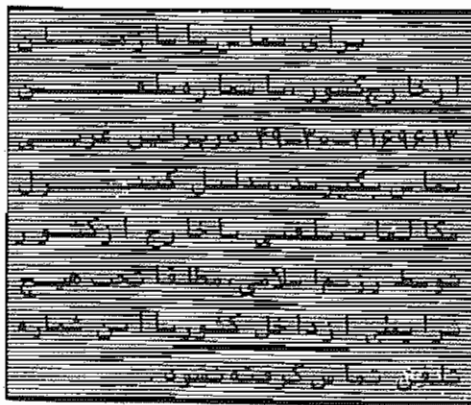 برای تماس با سازمــــان
از خارج کشور، با شماره تلفــــن
۳۱۶۹۶۱۳ــ۳۰ــ۴۹ در برلین غربــی
تماس بگیرید. کنتــــرل
مکالمات تلفنی با خارج از کشــور
توسط رژیم اسلامی، مطلقا تحت هیــچ
شرایطی از داخل کشور با این شماره
تلفن تماس گرفته نشود.